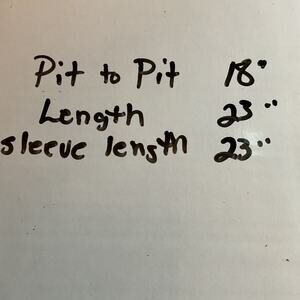 Pit to Pit 18"
Length 23"
sleeve length 23"